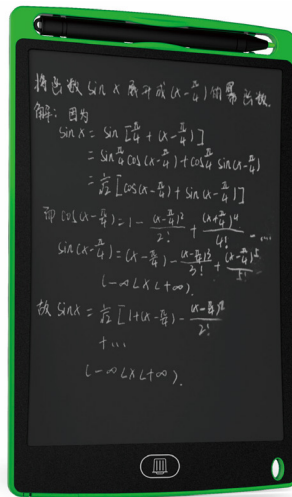 将函数 sin x 展开成 (x-π/4) 的幂函数.
解: 因为
sin x = sin [π/4 + (x-π/4)]
= sin π/4 cos(x-π/4) + cos π/4 sin(x-π/4)
= 1/√2 [cos(x-π/4) + sin(x-π/4)]
而 cos(x-π/4) = 1 - (x-π/4)²/2! + (x+π/4)⁴/4! - ...
sin(x-π/4) = (x-π/4) - (x-π/4)³/3! + (x-π/4)⁵/5!
(-∞<x<+∞).
故 sin x = 1/√2 [1+(x-π/4) - (x-π/4)²/2!
+...
(-∞<x<+∞).